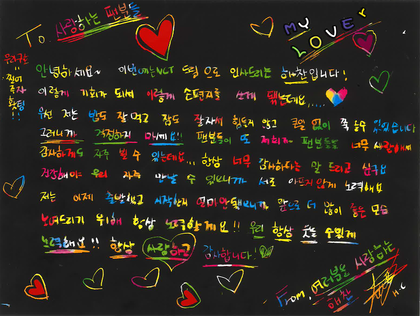 To 사랑하는 팬분들
MY LOVER
안녕하세요~ 이번에는 NCT 드림 으로 인사드리는 해찬입니다!
이렇게 기회가 되서 이렇게 손편지를 쓰게 됐는데요....
우선 저는 밥도 잘 먹고 잠도 잘자서 힘들지 않고 큰일 없이 쭉
그러니까 걱정하지 마세요!! 팬분들이 또 저희가 팬분들 너무 사랑해서
감사하게도 자주 볼 수 있는데요... 항상 너무 감사하다는 말 드리고 싶구요
우리 자주 만날 수 있으니까 서로 아프지 않게 노력해요
저는 이제 출발했고 시작해서 얼마 안됐으니까 앞으로 더 많이 좋은 모습
보여드리기 위해 항상 노력할게요!! 우리 항상 웃는 수 있게
노력해요!! 항상 사랑하고 감사합니다!
From. 여러분을 사랑하는
해찬